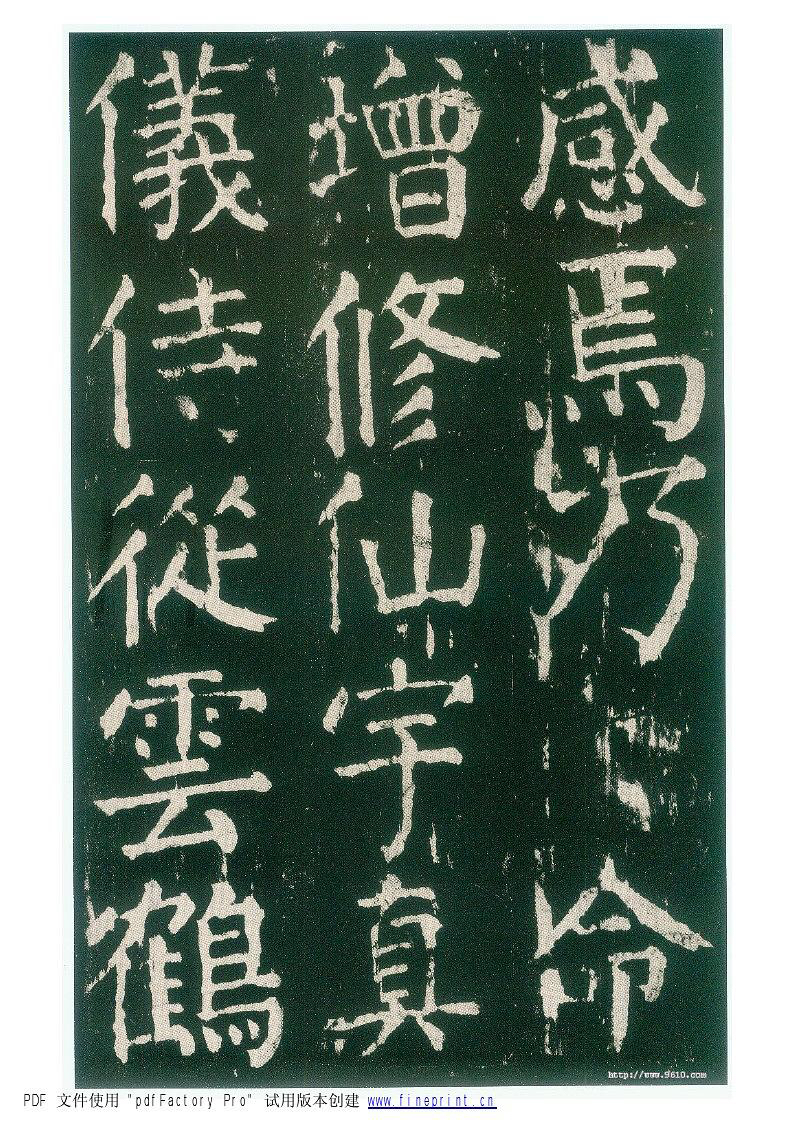 感焉乃命
增修仙宇真
儀侍從雲鶴
http://www.9610.com
PDF 文件使用 "pdfFactory Pro" 试用版本创建 www.fineprint.cn